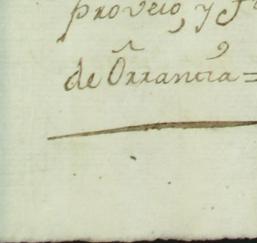 proveio, y f
de Orrancia=